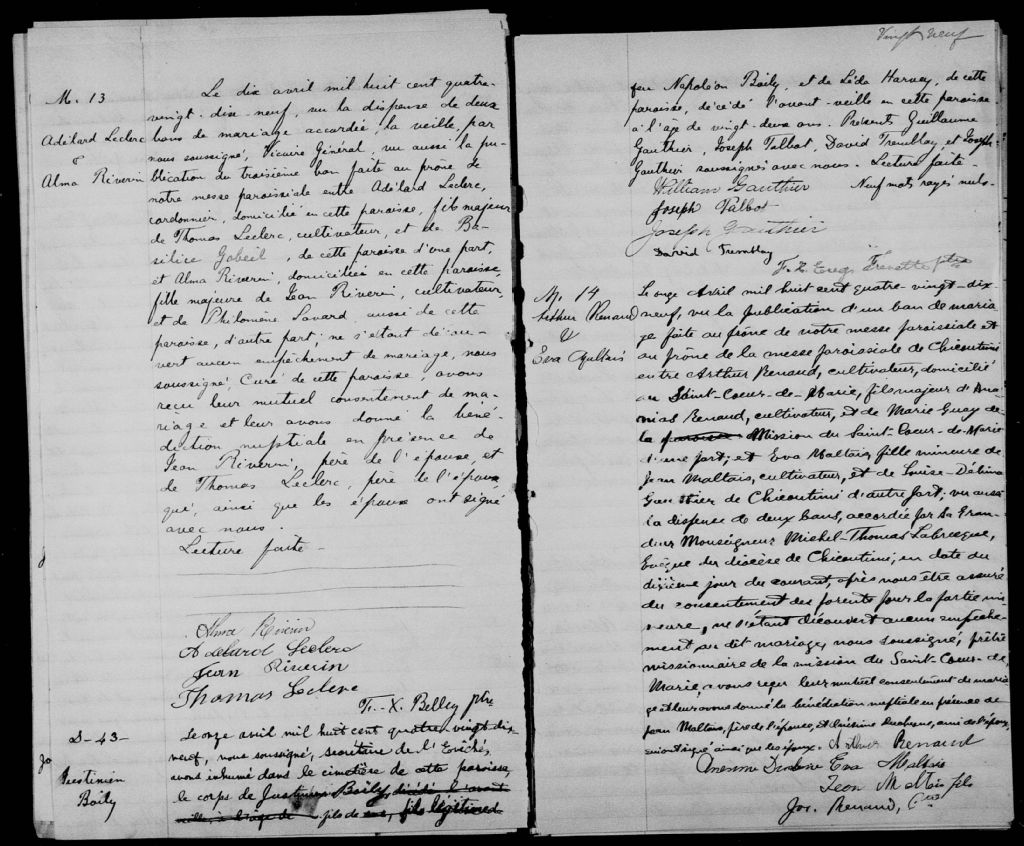 M. 13
Adélard Leclerc
&
Alma Riverin
Le dix avril mil huit cent quatre-
vingt-dix-neuf, vu la dispense de deux
bans de mariage accordée, la veille, par
nous soussigné, Vicaire Général, vu aussi la pu-
blication du troisième ban faite au prône de
notre messe paroissiale entre Adélard Leclerc,
cordonnier, domicilié en cette paroisse, fils majeur
de Thomas Leclerc, cultivateur, et de Ba-
silice Gobeil, de cette paroisse d'une part,
et Alma Riverin, domiciliée en cette paroisse,
fille majeure de Jean Riverin, cultivateur,
et de Philomène Savard aussi de cette
paroisse, d'autre part; ne s'étant décou-
vert aucun empêchement de mariage, nous
soussigné, Curé de cette paroisse, avons
reçu leur mutuel consentement de ma-
riage et leur avons donné la béné-
diction nuptiale en présence de
Jean Riverin, père de l'épouse, et
de Thomas Leclerc, père de l'époux
qui, ainsi que les époux ont signé
avec nous.
Lecture faite -
Alma Riverin
Adelard Leclerc
Jean Riverin
Thomas Leclerc
F.-X. Belley ptre
S-43-
Justinien
Boily
Le onze avril mil huit cent quatre-vingt-dix-
neuf, nous soussigné, secrétaire de l'Evêché,
avons inhumé dans le cimetière de cette paroisse,
le corps de Justinien Boily, décédé l'avant
veille, à l'âge de fils de fils légitime de
Vingt neuf
feu Napoléon Boily, et de Léda Harvey, de cette
paroisse, décédé l'avant-veille en cette paroisse
à l'âge de vingt-deux ans. Présents Guillaume
Gauthier, Joseph Talbot, David Tremblay, et Joseph
Gauthier soussignés avec nous. Lecture faite.
William Gauthier Neuf mots rayés nuls-
Joseph Talbot
Joseph Gauthier
David Tremblay
Frenette ptre
M. 14
Arthur Renaud
&
Eva Maltais
Le onze Avril mil huit cent quatre-vingt-dix-
neuf, vu la publication d'un ban de maria
ge faite au prône de notre messe paroissiale et
au prône de la messe paroissiale de Chicoutimi
entre Arthur Renaud, cultivateur, domicilié
au Saint-Coeur-de-Marie, fils majeur d'Ana-
nias Renaud, cultivateur, et de Marie Guay de
la paroisse Mission du Saint-Coeur-de-Marie
d'une part; et Eva Maltais, fille mineure de
Jean Maltais, cultivateur, et de Louise-Délina
Gauthier de Chicoutimi d'autre part; vu aussi
la dispense de deux bans, accordée par Sa Gran-
deur Monseigneur Michel-Thomas Labrecque,
Evêque du diocèse de Chicoutimi, en date du
dixième jour du courant, après nous être assuré
du consentement des parents pour la partie mi-
neure, ne s'étant découvert aucun empêche-
ment au dit mariage, nous soussigné, prêtre
missionnaire de la mission du Saint-Coeur-de-
Marie, avons reçu leur mutuel consentement de maria-
ge et leur avons donné la bénédiction nuptiale en présence de
Jean Maltais, père de l'épouse, et ami de l'époux,
qui ont signé ainsi que les époux. Arthur Renaud
Eva Maltais
Jean Maltais fils
Jos. Renaud,